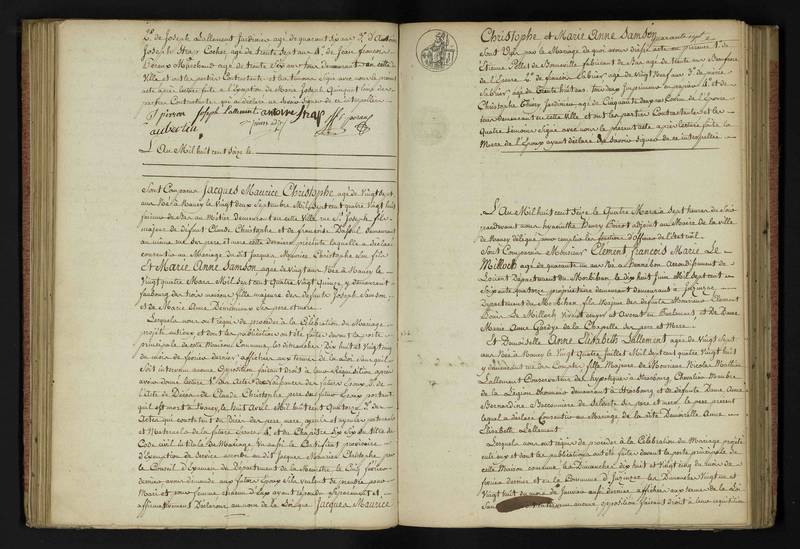 2. de Joseph Lallement Jardinier agé de quarante six ans 3. d'Antoine
Joseph Strap Cocher agé de trente sept ans 4. de Jean françois
agé de trente six ans tous demeurant en cette
Ville et ont les parties Contractantes et les témoins Signé avec nous le présent
acte après lecture faite à l'Exception de Marie Joseph
parties Contractantes qui a déclaré ne savoir signer de ce interpellée
J pierron Joseph Lallement antoine Strap
aubertin
L'An Mil huit cent Seize le
Sont Comparus Jacques Maurice Christophe agé de Vingt Sept
ans Né à Nancy le Vingt deux Septembre Mil Sept cent quatre Vingt huit
faiseur de Bas au Métier demeurant en cette Ville rue St. Joseph fils
majeur de défunt Claude Christophe et de françoise demeurant
au même rue Ses pere et mere cette derniere présente laquelle a déclaré
consentir au Mariage du dit Jacques Maurice Christophe Son fils
Et Marie Anne Samson agée de Vingt ans Née à Nancy le
Vingt quatre Mars Mil Sept cent quatre Vingt quinze y demeurant
faubourg des trois maisons fille majeure des defunts Joseph Samson
et de Marie Anne Ses pere et mere
Lesquels nous ont requis de procéder à la Célébration du Mariage
projetté entre eux et dont les publications ont été faites devant la porte
principale de cette Maison Commune, les dimanches Dix huit et Vingt cinq
du mois de février dernier afficher aux termes de la Loi Sans qu'il
Soit intervenu aucune Opposition faisant droit à leur Requisition après
avoir donné lecture 1. des Actes de Naissance des futurs Epoux 2. de
l'Acte de Décès de Claude Christophe pere du futur Epoux portant
qu'il est mort à Nancy le huit Avril Mil huit cent Quatorze 3. des
Actes qui constatent du Décès des pere, mere, ayeuls et ayeules paternels
et Maternels de la future Epouse 4. et du Chapitre Six du titre du
Code civil intitulé du Mariage Vu aussi le Certificat provisoire
d'Exemption de Service accordé au dit Jacques Maurice Christophe par
le Conseil d'Examen du Département de la Meurthe le Cinq février
dernier avons demandé aux futurs Epoux s'ils veulent se prendre pour
Mari et pour femme chacun d'Eux ayant répondu Séparément et
affirmativement Déclarons au nom de la Loi que Jacques Maurice
Christophe et Marie Anne Samson
Sont Unis par le Mariage de quoi avons dressé acte en présence 1. de
Etienne de Bonneville fabricant de Bas agé de trente ans Beaufrere
de l'Epouse 2. de françois agé de Vingt Neuf ans 3. de pierre
agé de trente huit ans tous deux Imprimeurs en papier 4. et de
Christophe Thiery Jardinier agé de Cinquante deux ans Cousin de l'Epouse
tous Demeurant en cette Ville et ont les parties Contractantes et les
Quatre témoins Signé avec nous le présent acte après lecture faite la
Mere de l'Epoux ayant déclaré ne Savoir signer de ce interpellée
L'An Mil huit cent Seize le Quatre Mars à Sept heures du Soir
pardevant nous hyacinthe Henry adjoint au Maire de la ville
de Nancy délégué pour remplir les fonctions d'officier de l'état civil
Sont Comparus Monsieur Clement françois Marie Le
Milloch agé de quarante un ans Né à hennebon arrondissement de
Lorient Département du Morbihan le dix huit Juin Mil Sept cent
Soixante quatorze propriétaire demeurant à Inzinzac
Département du Morbihan fils Majeur des défunts Monsieur Clement
Le Milloch Vivant ecuyer et Avocat en Parlement, et De Dame
Marie Anne de la Chapelle Ses pere et Mere
Et Demoiselle Anne Elisabeth Lallement agée de Vingt Sept
ans Née à Nancy le Vingt Quatre Juillet Mil Sept cent quatre Vingt huit
y demeurant fille Majeure de Monsieur Nicolas Mathieu
Lallement Conservateur des hypotèques à Strasbourg Chevalier Membre
de la Légion d'honneur demeurant à Strasbourg et de défunte Dame Anne
Bernardine Ses pere et mere le pere présent
lequel a déclaré Consentir au Mariage de la dite Demoiselle Anne
Elisabeth Lallement
Lesquels nous ont requis de procéder à la Célébration du Mariage projetté
entre eux et dont les publications ont été faites devant la porte principale de
cette Maison commune les Dimanches dix huit et Vingt cinq du mois de
février dernier et en la Commune d'Inzinzac les Dimanches Vingt un et
Vingt huit du mois de Janvier aussi dernier afficher aux termes de la Loi
Sans intervenu aucune opposition faisant droit à leur requisition